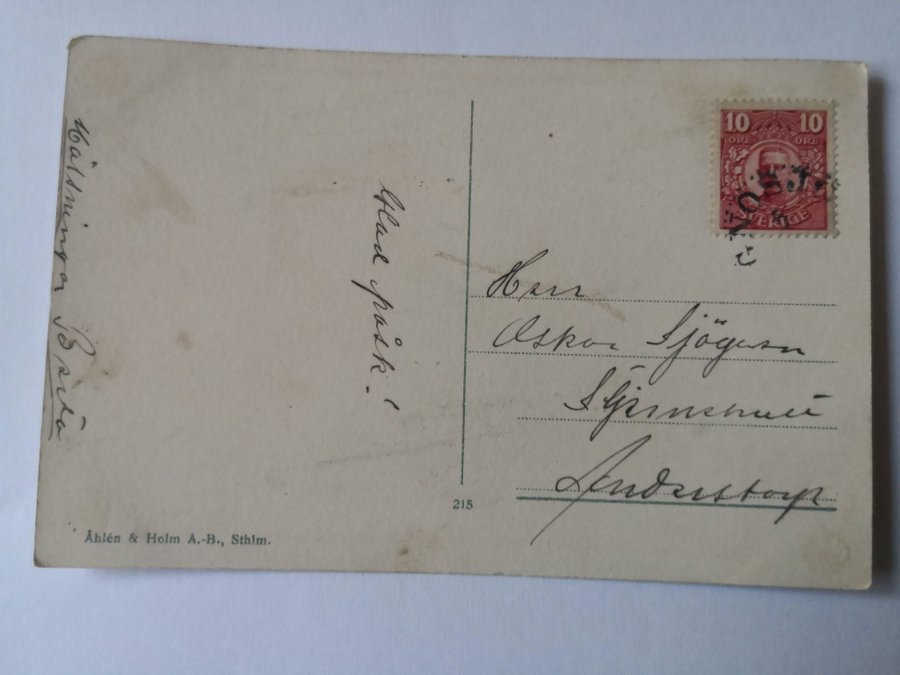 Hälsningar Brita
Glad påsk!
10 10
ÖRE ÖRE
SVERIGE
Herr
Oskar Sjögren
Anderstorp
215
Åhlén & Holm A.-B., Sthlm.